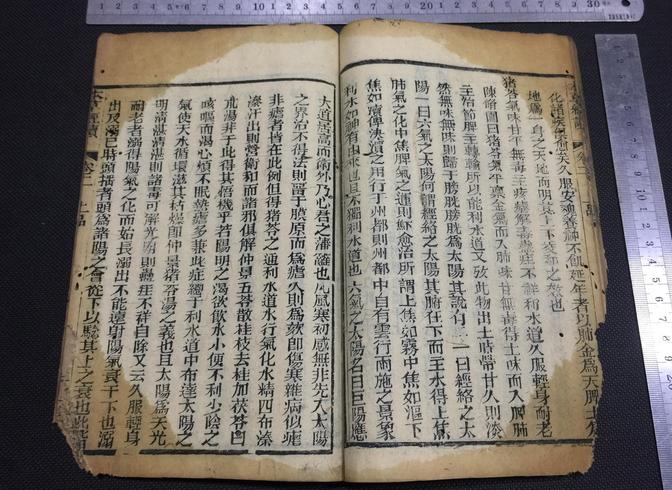 化諸氣
久服安魂養神不飢延年者以肺金爲天脾土爲
地爲一身之天地而明其上下交和之效也
豬苓氣味甘平無毒主痎瘧解毒蠱疰不祥利水道久服輕身耐老
陳脩園曰豬苓氣平稟金氣而入肺味甘無毒得土味而入脾肺
主治節脾主轉輸所以能利水道又攷此物出土時帶甘久則淡
然無味無味則歸于膀胱膀胱爲太陽其說有二一曰經絡之太
陽一曰六氣之太陽何謂經絡之太陽其腑在下而主水得上焦
肺氣之化中焦脾氣之運則鯀愈治所謂上焦如霧中焦如漚下
焦如瀆俾決瀆之用行于州都則州都中自有雲行雨施之景象
利水如神有由來也且不獨利水道也六氣之太陽名曰巨陽應
大道居高而衛外乃心君之藩籬也凡風寒初感無非先入太陽
之界治不得法則留于膜原而爲瘧久則爲痎即傷寒雜病似瘧
非瘧者皆在此例但得豬苓之通利水道水行氣化水精四布溱
溱汗出則營衛和而諸邪俱解仲景五苓散桂枝去桂加茯苓白
朮湯非于此得其悟機乎若陽明之渴欲飲水小便不利少陰之
咳嘔而渴心煩不眠熱瘧多兼此症總于利水道中布達太陽之
氣使天水循環滋其枯燥即仲景豬苓湯之義也且太陽爲天光
明清湛清湛則諸毒可解光明則蠱疰不祥自除又云久服輕身
耐老者溺得陽氣之化而始長溺出不能遠射陽氣衰于下也溺
出及溺已時頭搖者頭爲諸陽之會從下以驗其上之衰也此
卷二
上品